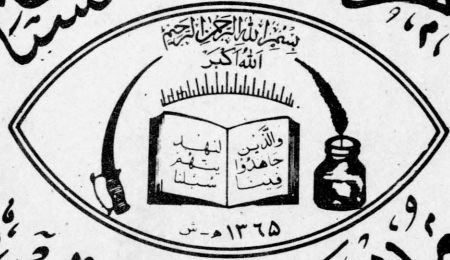 بسم الله الرحمن الرحيم
الله اکبر
والذین
جاهدوا
فینا
لنهد
ینهم
سبلنا
۱۳۶۵ هـ-ش